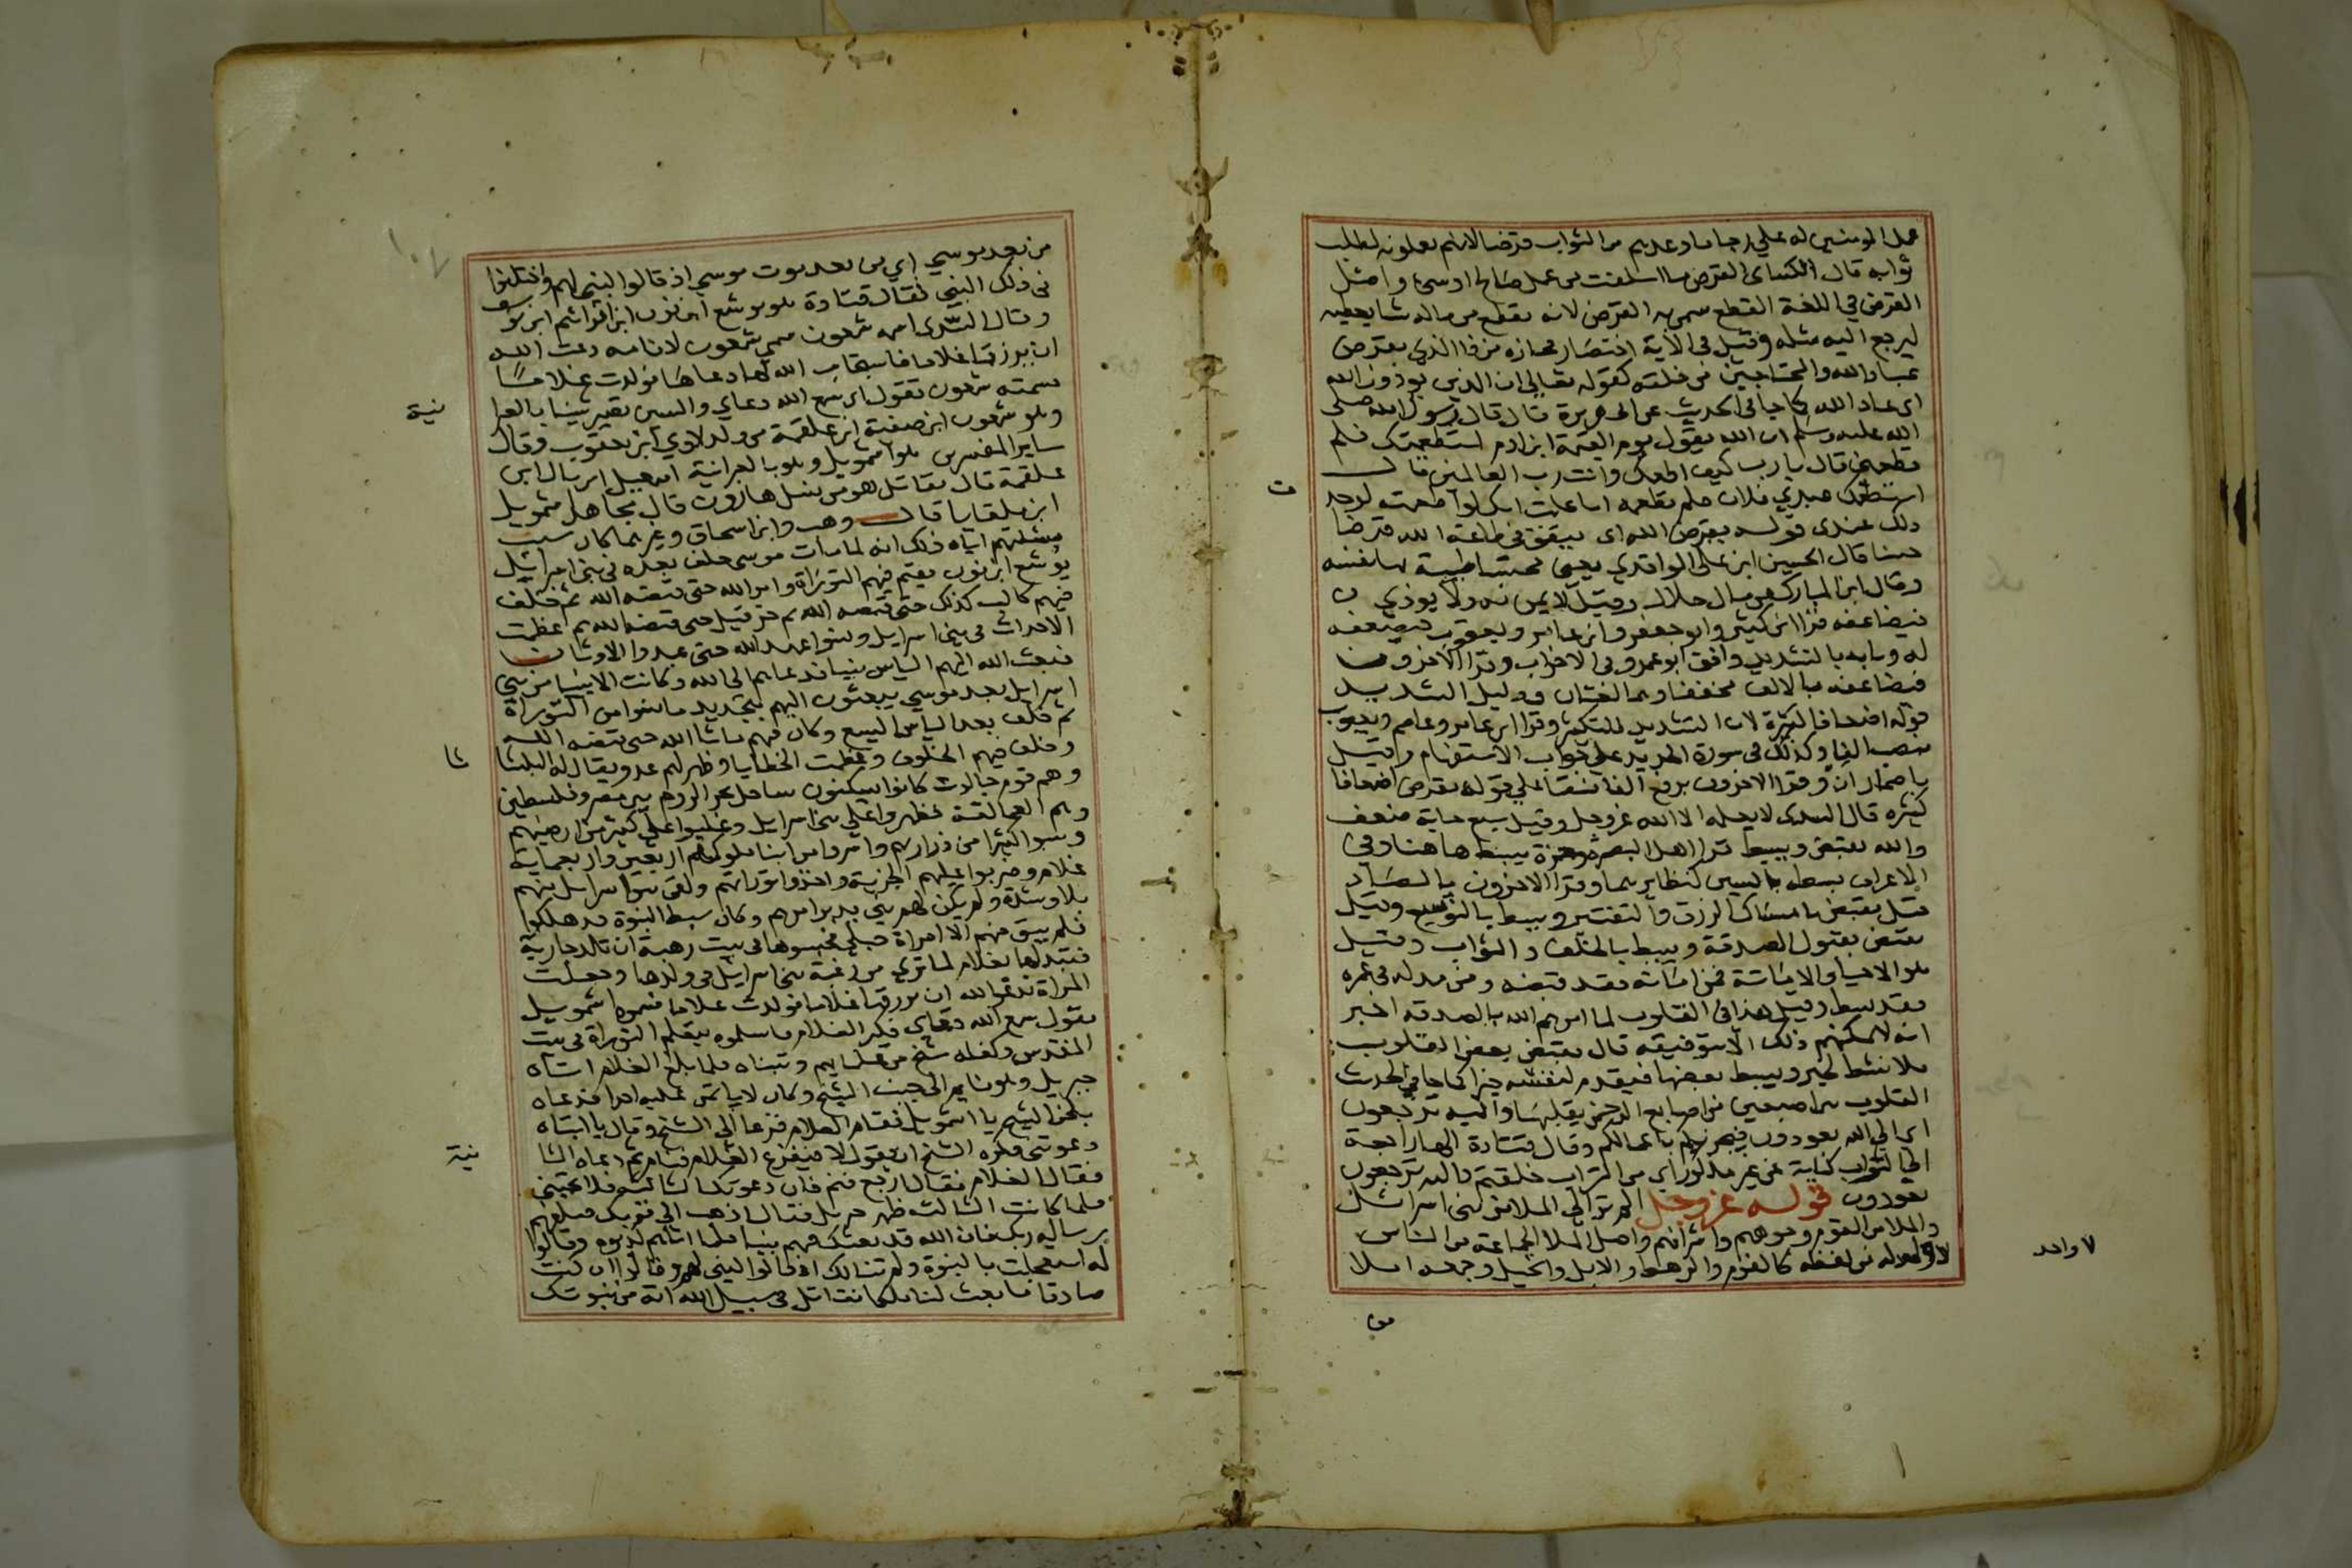 عمل المومنين له علي رجا ما وعدهم من الثواب قرضا لانهم يعملونه لطلب
ثوابه قال الكساى القرض ما اسلفت من عمل صالح او سي واصل
القرض في اللغة القطع سمي به القرض لانه يقطع من ماله شيا يعطيه
ليرجع اليه مثله وقيل في الاية اختصار مجازه من ذا الذي يقرض
عباد الله والمحتاجين من خلقه كقوله تعالي ان الذين يوذون الله
اى عباد الله كما جا في الحديث عن ابي هريرة قال قال رسول الله صلى
الله عليه وسلم ان الله يقول يوم القيمة ابن ادم استطعمتك فلم
تطعمني قال يا رب كيف اطعمك وانت رب العالمين قال
استطعمك عبدي فلان فلم تطعمه اما علمت انك لو اطعمته لوجدت
ذلك عندى قوله يقرض الله اى ينفق في طاعة الله قرضا
حسنا قال الحسين ابن على الواقدي يعني محتسبا طيبة بها نفسه
وقال ابن المبارك هو من مال حلال وقيل لا يمن به ولا يوذي
فيضاعفه قرا ابن كثير وابو جعفر وابن عامر ويعقوب فيضعفه
له وبابه بالتشديد وافق ابو عمرو في الاحزاب وقرا الاخرون
فيضاعفه بالالف مخففا وهما لغتان ودليل التشديد
قوله اضعافا كثيرة لان التشديد للتكثير وقرا ابن عامر وعاصم ويعقوب
بنصب الفا وكذلك في سورة الحديد علي جواب الاستفهام وقيل
باضمار ان وقرا الاخرون برفع الفا نسقا علي قوله يقرض اضعافا
كثيره قال السدى لا يعلمه الا الله عز وجل وقيل سبع ماية ضعف
والله يقبض ويبسط قرا اهل البصرة وحمزة يبسط هاهنا وفي
الاعراف بسطه بالسين كنظايرهما وقرا الاخرون بالصاد
قيل يقبض بامساك الرزق والتقتير ويبسط بالتوسيع وقيل
يقبض بقبول الصدقة ويبسط بالخلف والثواب وقيل
هو الاحيا والاماتة فمن اماته فقد قبضه ومن مد له في عمره
فقد بسط وقيل هذا في القلوب لما امرهم الله بالصدقه اخبر
انه لا يمكنهم ذلك الا بتوفيقه قال يقبض بعض القلوب
فلا تنشط لخير ويبسط بعضها فيقدم لنفسه خيرا كما جا في الحديث
القلوب بين اصبعين من اصابع الرحمن يقلبها واليه ترجعون
اى الى الله تعودون فيجزيكم باعمالكم وقال قتادة الها راجعة
الي التراب كناية عن غير مذكور اى من التراب خلقتم واليه ترجعون
تعودون قوله عز وجل الم تر الي الملا من بني اسرائيل
والملا من القوم وجوههم واشرافهم واصل الملا الجماعة من الناس
لا واحد له من لفظه كالقوم والرهط والابل والخيل وجمعه املا
ت
لا واحد
من
١٠٧
من بعد موسي اي من بعد موت موسي اذ قالوا لنبي لهم واختلفوا
في ذلك النبي فقال قتادة هو يوشع ابن نون ابن افرائيم ابن يوسف
وقال السّدى اسمه شمعون سمي شمعون لان امه دعت الله
ان يرزقها غلاما فاستجاب الله لها دعاها فولدت غلاما
سمته شمعون تقول سمع الله دعاي والسين تصير شينا بالعبرا
نية
وهو شمعون ابن صفية ابن علقمة من ولد لاوي ابن يعقوب وقال
ساير المفسرين هو اشمويل وهو بالعبرانية اسمعيل ابن يال ابن
علقمة قال مقاتل هو من نسل هارون قال مجاهد اشمويل
ابن هلقايا قال وهب وابن اسحاق وغيرهما كان سبب
مسئلتهم اياه ذلك انه لما مات موسى خلف بعده في بني اسرائيل
يوشع ابن نون يقيم فيهم التوراة وامر الله حتى قبضه الله ثم خلف
فيهم كالب كذلك حتى قبضه الله ثم حزقيل حتى قبضه الله ثم عظمت
الاحداث في بني اسرايل ونسوا عهد الله حتى عبدوا الاوثان
فبعث الله اليهم الياس نبيا فدعاهم الى الله وكانت الانبيا من بني
اسرايل بعد موسي يبعثون اليهم بتجديد ما نسوا من التوراة
ثم خلف بعد الياس اليسع وكان فيهم ما شا الله حتى قبضه الله
وخلف فيهم الخلوف وعظمت الخطايا وظهر لهم عدو يقال له البلثاثا
وهم قوم جالوت كانوا يسكنون ساحل بحر الروم بين مصر وفلسطين
وهم العمالقة فظهروا علي بني اسرايل وغلبوا علي كثير من ارضهم
وسبوا كثيرا من ذراريهم واسروا من ابنا ملوكهم اربعين واربعماية
غلام وضربوا عليهم الجزية واخذوا توراتهم ولقي بنوا اسرايل منهم
بلا وشدة ولم يكن لهم نبي يدبر امرهم وكان سبط النبوة قد هلكوا
فلم يبق منهم الا امراة حبلي فحبسوها في بيت رهبة ان تلد جارية
فتبدلها بغلام لما ترى من رغبة بني اسرايل في ولدها وجعلت
المراة تدعوا الله ان يرزقها غلاما فولدت غلاما فسموه اشمويل
تقول سمع الله دعاي فكبر الغلام فاسلموه يتعلم التوراة في بيت
المقدس وكفله شيخ من علمايهم وتبناه فلما بلغ الغلام اتاه
جبريل وهو نايم الى جنب الشيخ وكان لا ياتمن عليه احدا فدعاه
بلحن الشيخ يا اشمويل فقام الغلام فزعا الي الشيخ وقال يا ابتاه
دعوتني فكره الشيخ ان يقول لا فيفزع الغلام فنام ثم دعاه الثا
نية
فقال الغلام فقال ارجع فنم فان دعوتك الثالثه فلا تجبني
فلما كانت الثالثه ظهر جبريل فقال اذهب الى قومك فبلغهم
رسالة ربك فان الله قد بعثك فيهم نبيا فلما اتاهم كذبوه وقالوا
له استعجلت بالنبوة ولم تنالك اذ قالوا لنبي لهم وقالوا ان كنت
صادقا فابعث لنا ملكا نقاتل في سبيل الله اية من نبوتك